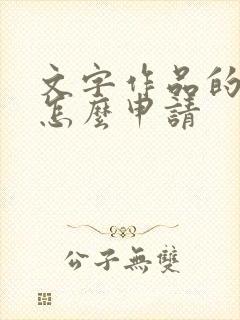 文字作品的
怎麼申請
公子無雙